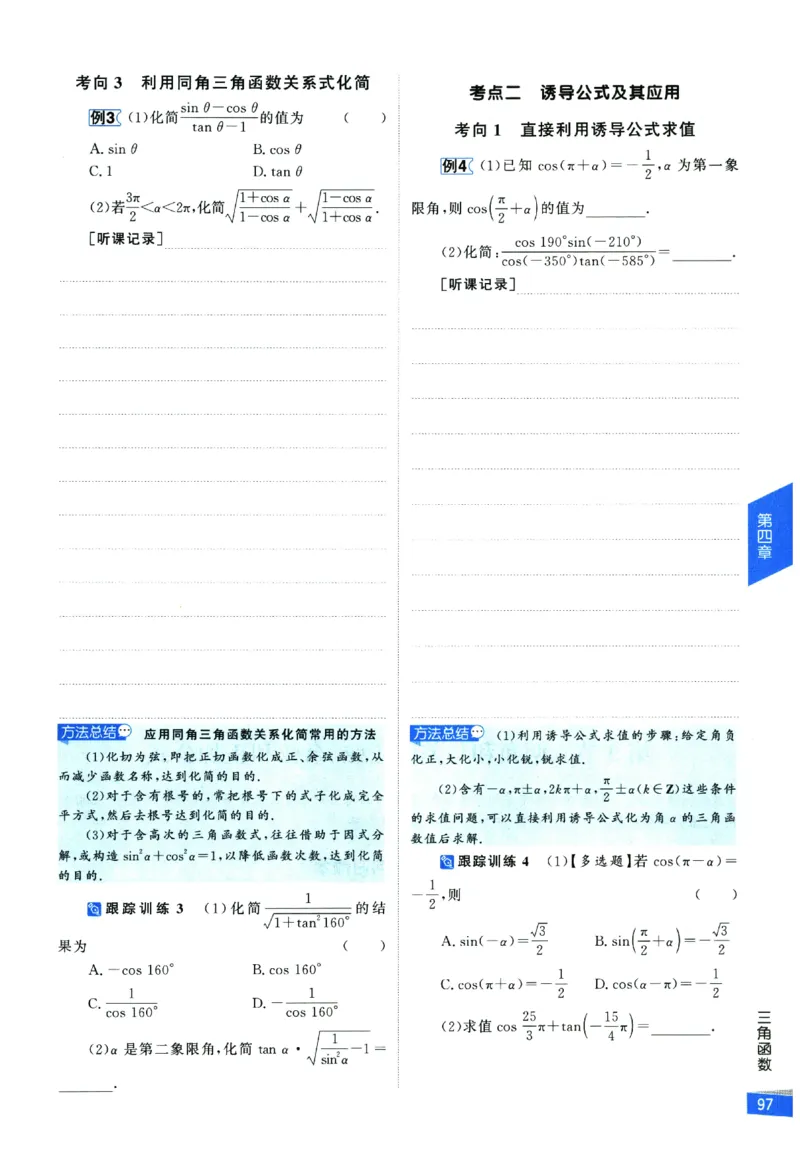 考向 3　利用同角三角函数关系式化简
例3 (1)化简 (sin θ－cos θ)/(tan θ－1) 的值为　(　　)
A. sin θ　　B. cos θ
C. 1　　D. tan θ
(2)若 3π/2＜α＜2π,化简 √((1＋cos α)/(1－cos α)) ＋ √((1－cos α)/(1＋cos α)).
[听课记录]
方法总结 应用同角三角函数关系化简常用的方法
(1)化切为弦,即把正切函数化成正、余弦函数,从
而减少函数名称,达到化简的目的.
(2)对于含有根号的,常把根号下的式子化成完全
平方式,然后去根号达到化简的目的.
(3)对于含高次的三角函数式,往往借助于因式分
解,或构造 sin²α＋cos²α＝1,以降低函数次数,达到化简
的目的.
跟踪训练 3　(1)化简 1/√(1＋tan²160°) 的结
果为　(　　)
A. －cos 160°　　B. cos 160°
C. 1/cos 160°　　D. －1/cos 160°
(2)α 是第二象限角,化简 tan α · √(1/sin²α －1)＝
______.
考点二　诱导公式及其应用
考向 1　直接利用诱导公式求值
例4 (1)已知 cos(π＋α)＝－1/2,α 为第一象
限角,则 cos(π/2＋α)的值为______.
(2)化简: cos 190°sin(－210°)/cos(－350°)tan(－585°)＝______.
[听课记录]
方法总结 (1)利用诱导公式求值的步骤:给定角负
化正,大化小,小化锐,锐求值.
(2)含有－α,π±α,2kπ＋α,π/2±α(k∈Z)这些条件
的求值问题,可以直接利用诱导公式化为角 α 的三角函
数值后求解.
跟踪训练 4　(1)【多选题】若 cos(π－α)＝
－1/2,则　(　　)
A. sin(－α)＝√3/2　　B. sin(π/2＋α)＝－√3/2
C. cos(π＋α)＝－1/2　　D. cos(α－π)＝－1/2
(2)求值 cos 25/3 π＋tan(－15/4 π)＝______.
第四章
三角函数
97